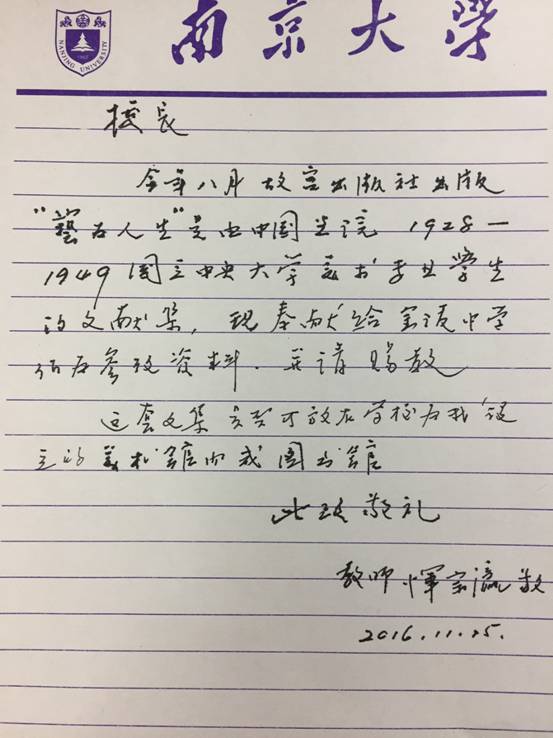 南京大学
NANJING UNIVERSITY
校长
今年八月故宫出版社出版
"藝为人生"是由中国 1928—
1949 国立中央大学美术专业学生
的文献集，现奉献给金陵中学
作为参攷资料．并请赐教
这套文集 可放在学校为我设
立的美术馆内或图书馆
此致敬礼
教师 恽宗瀛敬
2016.11.25.